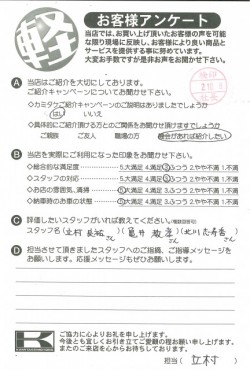 軽
お客様アンケート
当店では、お買い上げ頂いたお客様の声を可能
な限り現場に反映し、お客様により良い商品と
サービスを提供する事に努めています。
大変お手数ですが是非お声をお聞かせ下さい。
A 当店はご紹介を大切にしております。
ご紹介キャンペーンについてお聞かせ下さい。
◇カミタケご紹介キャンペーンのご説明はありましたでしょうか
はい いいえ
◇具体的にご紹介頂ける方とのご関係をお聞かせ頂けますでしょうか
ご親族 ご友人 職場の方
B 当店を実際にご利用になった印象をお聞かせ下さい。
◇総合的な満足度 5.大満足 4.満足 3.ふつう 2.やや不満 1.不満
◇スタッフの対応 5.大満足 4.満足 3.ふつう 2.やや不満 1.不満
◇お店の雰囲気、清掃 5.大満足 4.満足 3.ふつう 2.やや不満 1.不満
◇納車時のお車の状態 5.大満足 4.満足 3.ふつう 2.やや不満 1.不満
C 評価したいスタッフがいれば教えてください。
スタッフ名
D 担当させて頂きましたスタッフへのご指摘、ご指導メッセージを
お願いします。応援メッセージもぜひお願いします。
K
ご協力に心よりお礼を申し上げます。
今後とも宜しくお引き立てご愛顧の程お願い申し上げます。
またのご来店を心からお待ちしております。
担当( 立村 )